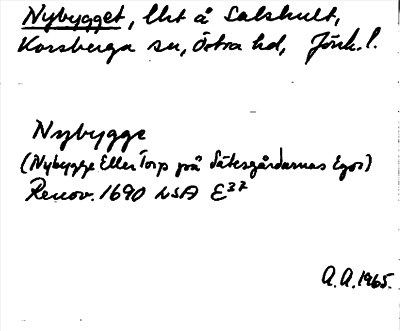 Nybygget, lht å Salshult,
Korsberga sn, Östra hd, Jönk. l.
Nybygge
(Nybygge Eller Torp på Sätesgårdarnas Egor)
Renov. 1690 LSA E37
A.A. 1965.